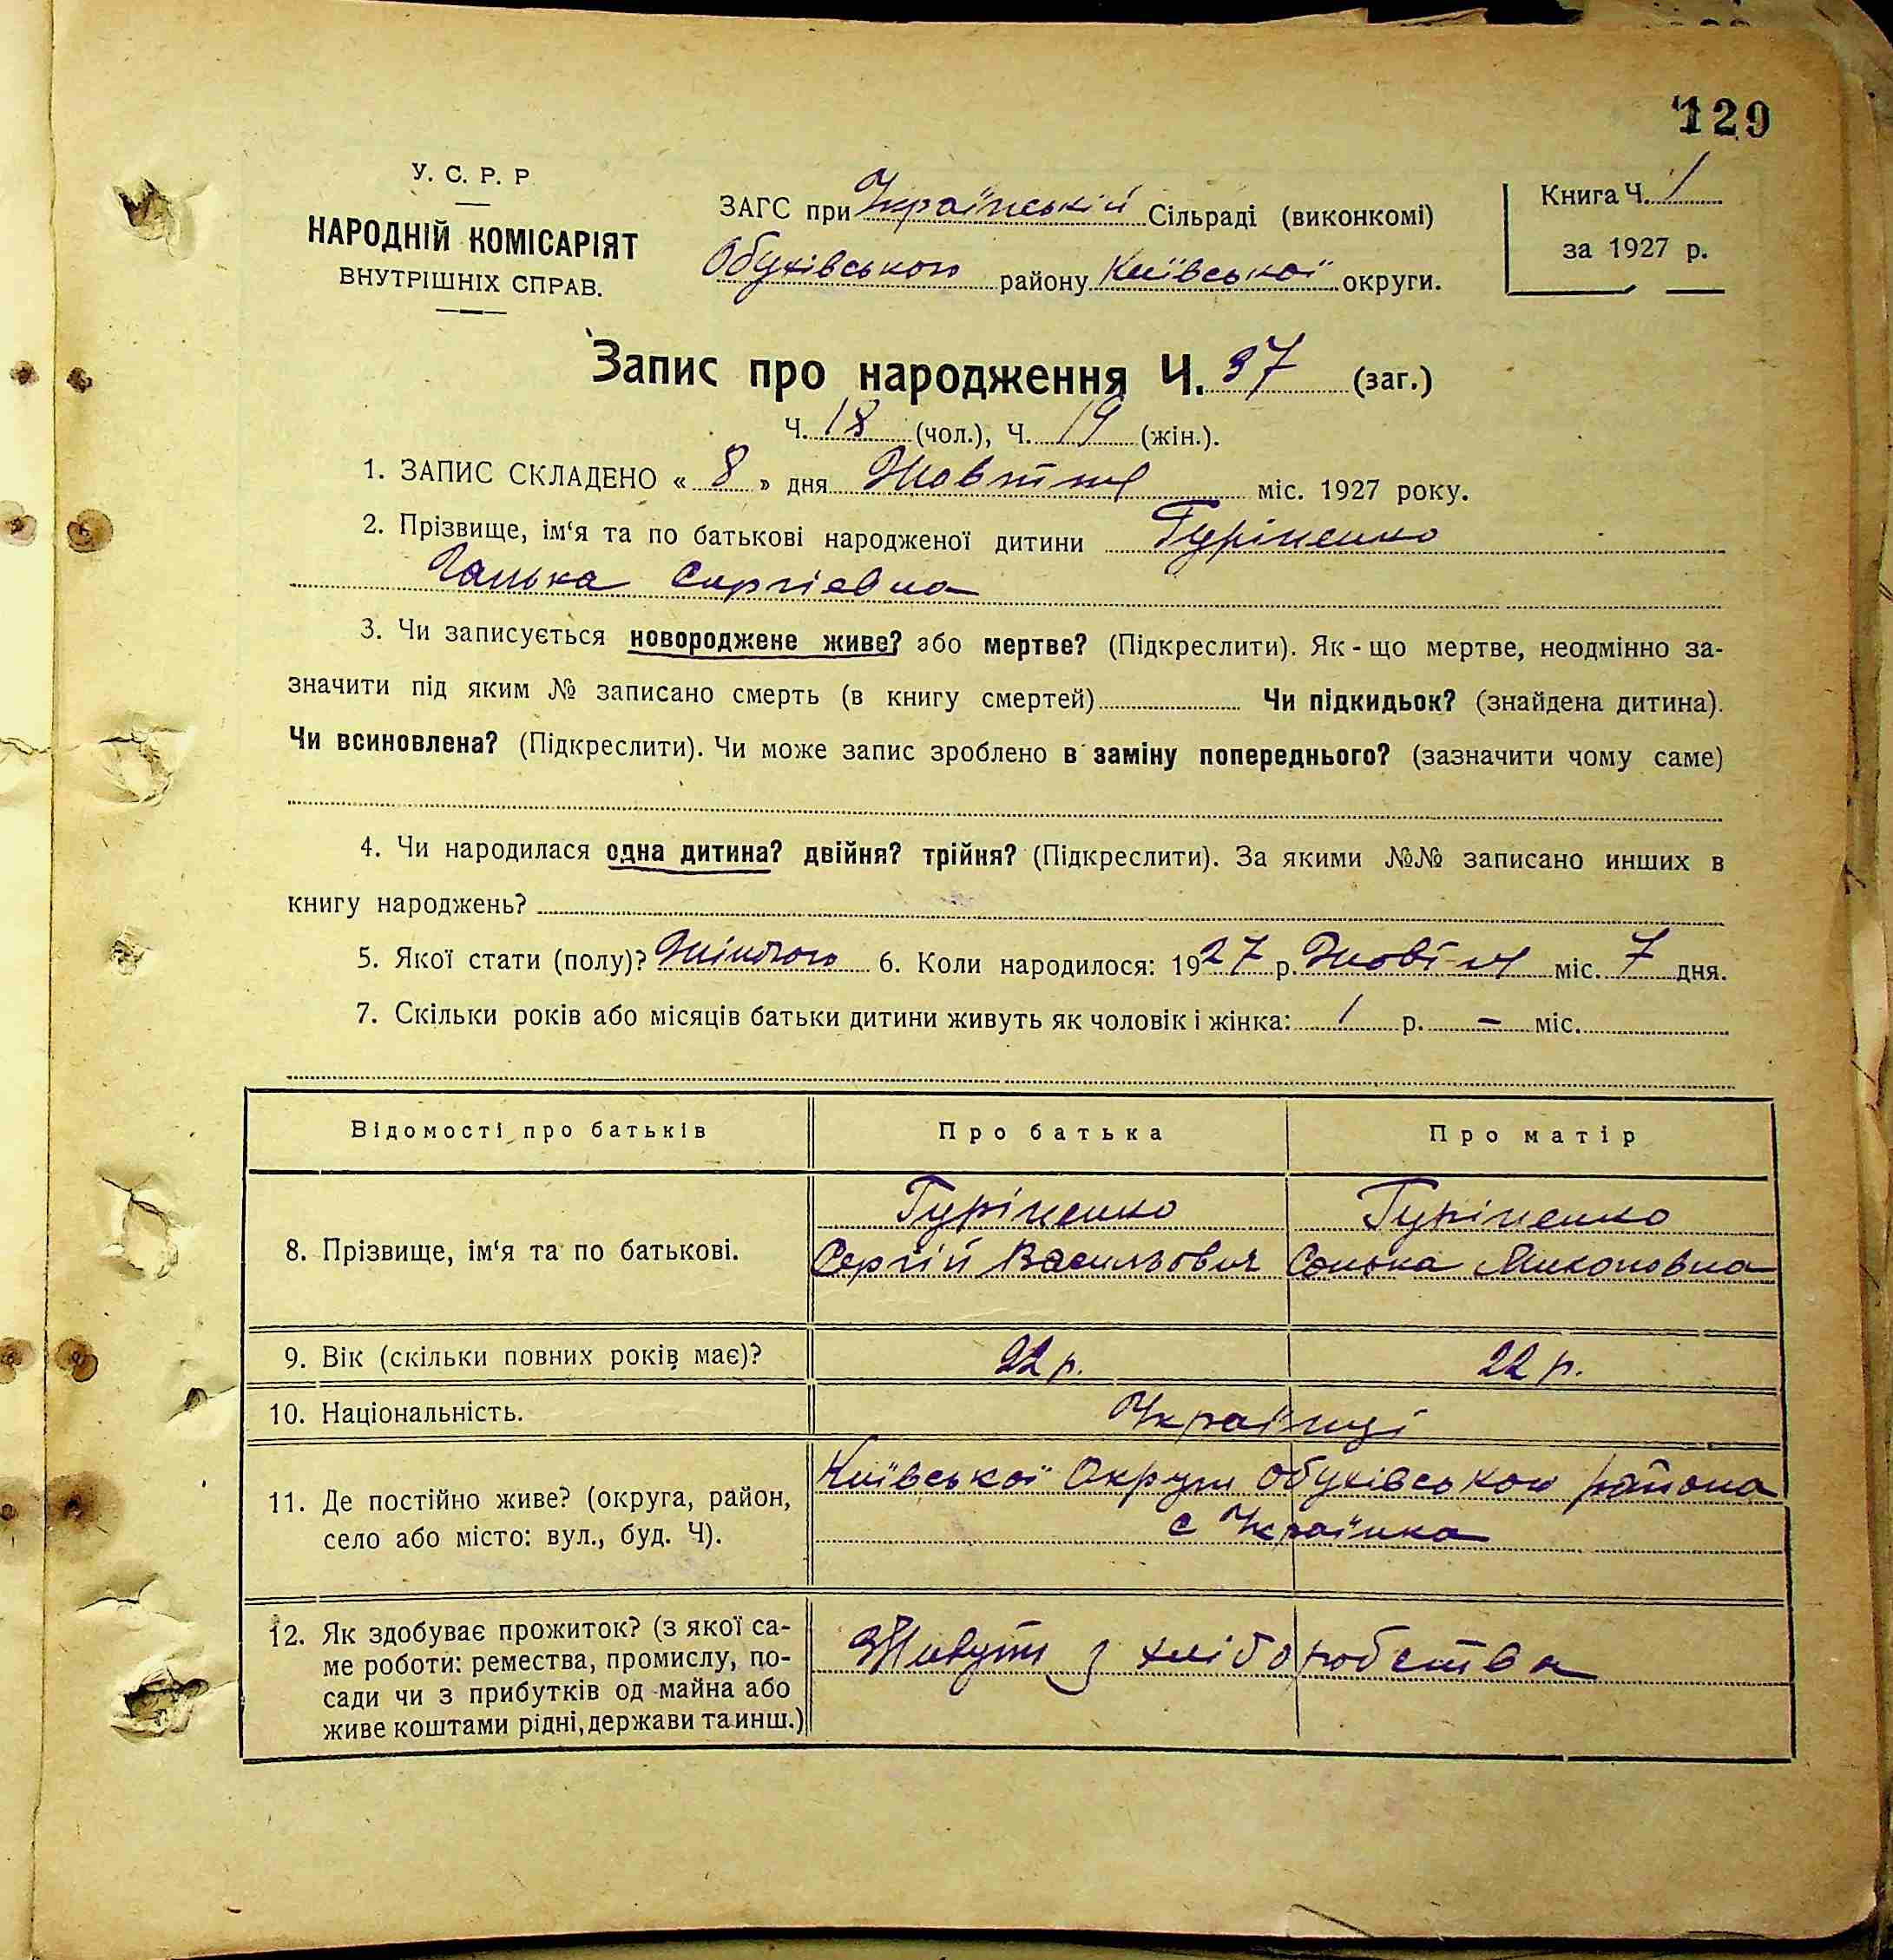 129
У. С. Р. Р
НАРОДНІЙ КОМІСАРІЯТ
ВНУТРІШНІХ СПРАВ.
ЗАГС при Українській Сільраді (виконкомі)
Обухівського району Київської округи.
Книга Ч. 1
за 1927 р.
Запис про народження Ч. 37 (заг.)
Ч. 18 (чол.), Ч. 19 (жін.).
1. ЗАПИС СКЛАДЕНО « 8 » дня Жовтня міс. 1927 року.
2. Прізвище, ім‘я та по батькові народженої дитини Гуріненко
Галька Сергієвна
3. Чи записується новороджене живе? або мертве? (Підкреслити). Як-що мертве, неодмінно за-
значити під яким № записано смерть (в книгу смертей) Чи підкидьок? (знайдена дитина).
Чи всиновлена? (Підкреслити). Чи може запис зроблено в заміну попереднього? (зазначити чому саме)
4. Чи народилася одна дитина? двійня? трійня? (Підкреслити). За якими №№ записано инших в
книгу народжень?
5. Якої стати (полу)? Жіночого 6. Коли народилося: 1927 р. Жовтня міс. 7 дня.
7. Скільки років або місяців батьки дитини живуть як чоловік і жінка: 1 р. – міс.
Відомості про батьків Про батька Про матір
Гуріненко Гуріненко
8. Прізвище, ім‘я та по батькові. Сергій Васильович Сонька Миколовна
9. Вік (скільки повних років має)? 22 р. 22 р.
10. Національність. Українці
Київської Округи Обухівського района
11. Де постійно живе? (округа, район,
село або місто: вул., буд. Ч). с Українка
12. Як здобуває прожиток? (з якої са-
ме роботи: ремества, промислу, по- Живуть з хліборобства
сади чи з прибутків од майна або
живе коштами рідні, держави та инш.)